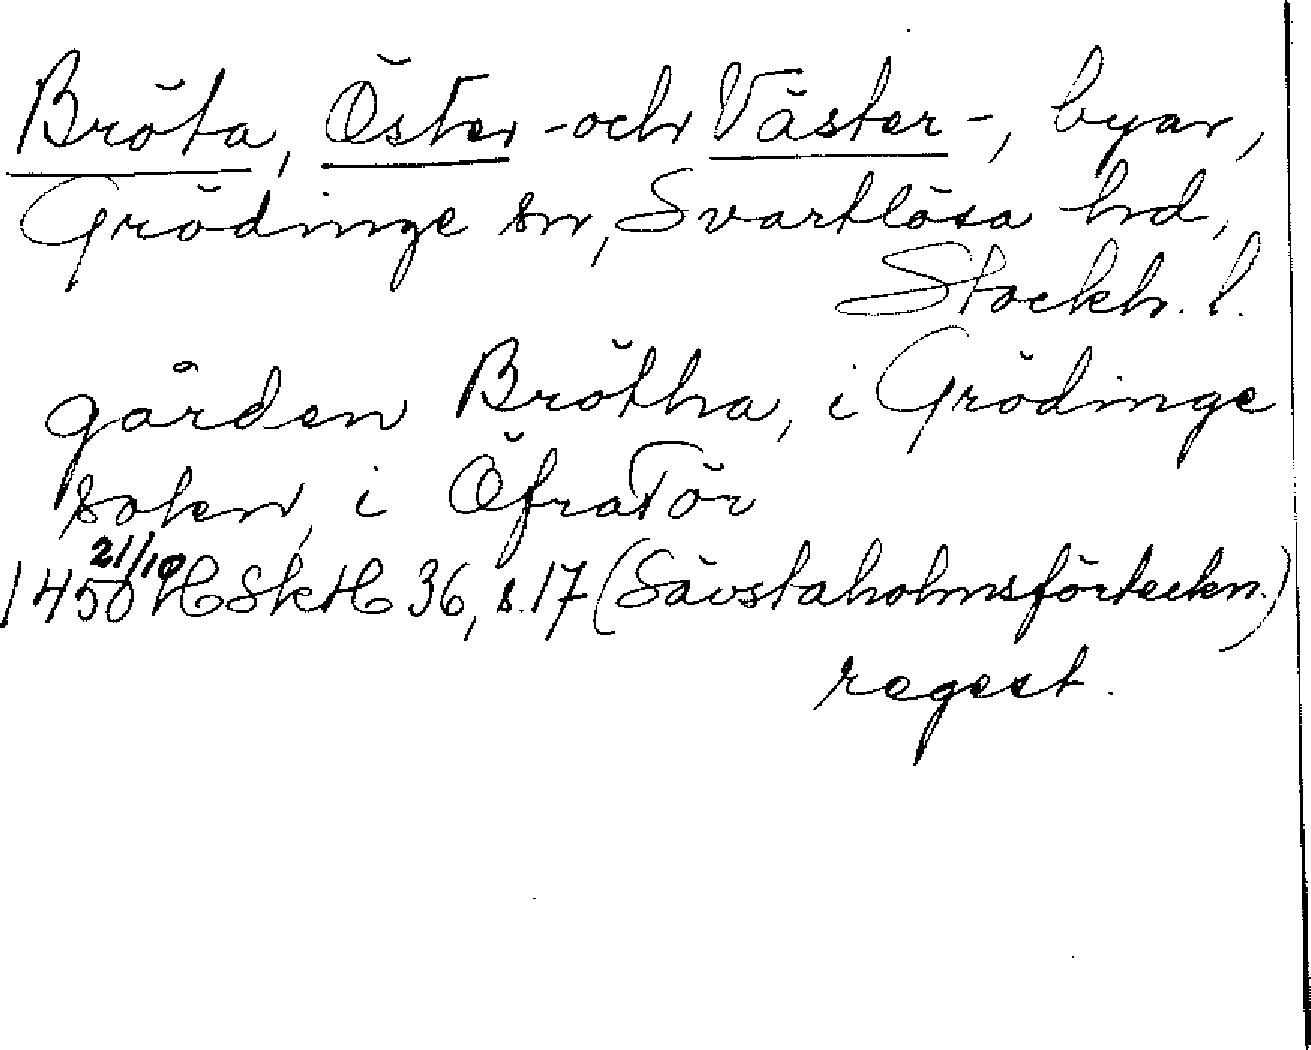 Bröta, Öster- och Väster-, byar,
Grödinge sn, Svartlösa hd,
Stockh. l.
gården Bröttha, i Grödinge
sokn, i Öfra Tör
1450 21/10 HSkH 36, s. 17 (Sävstaholmsförteckn.)
regest.